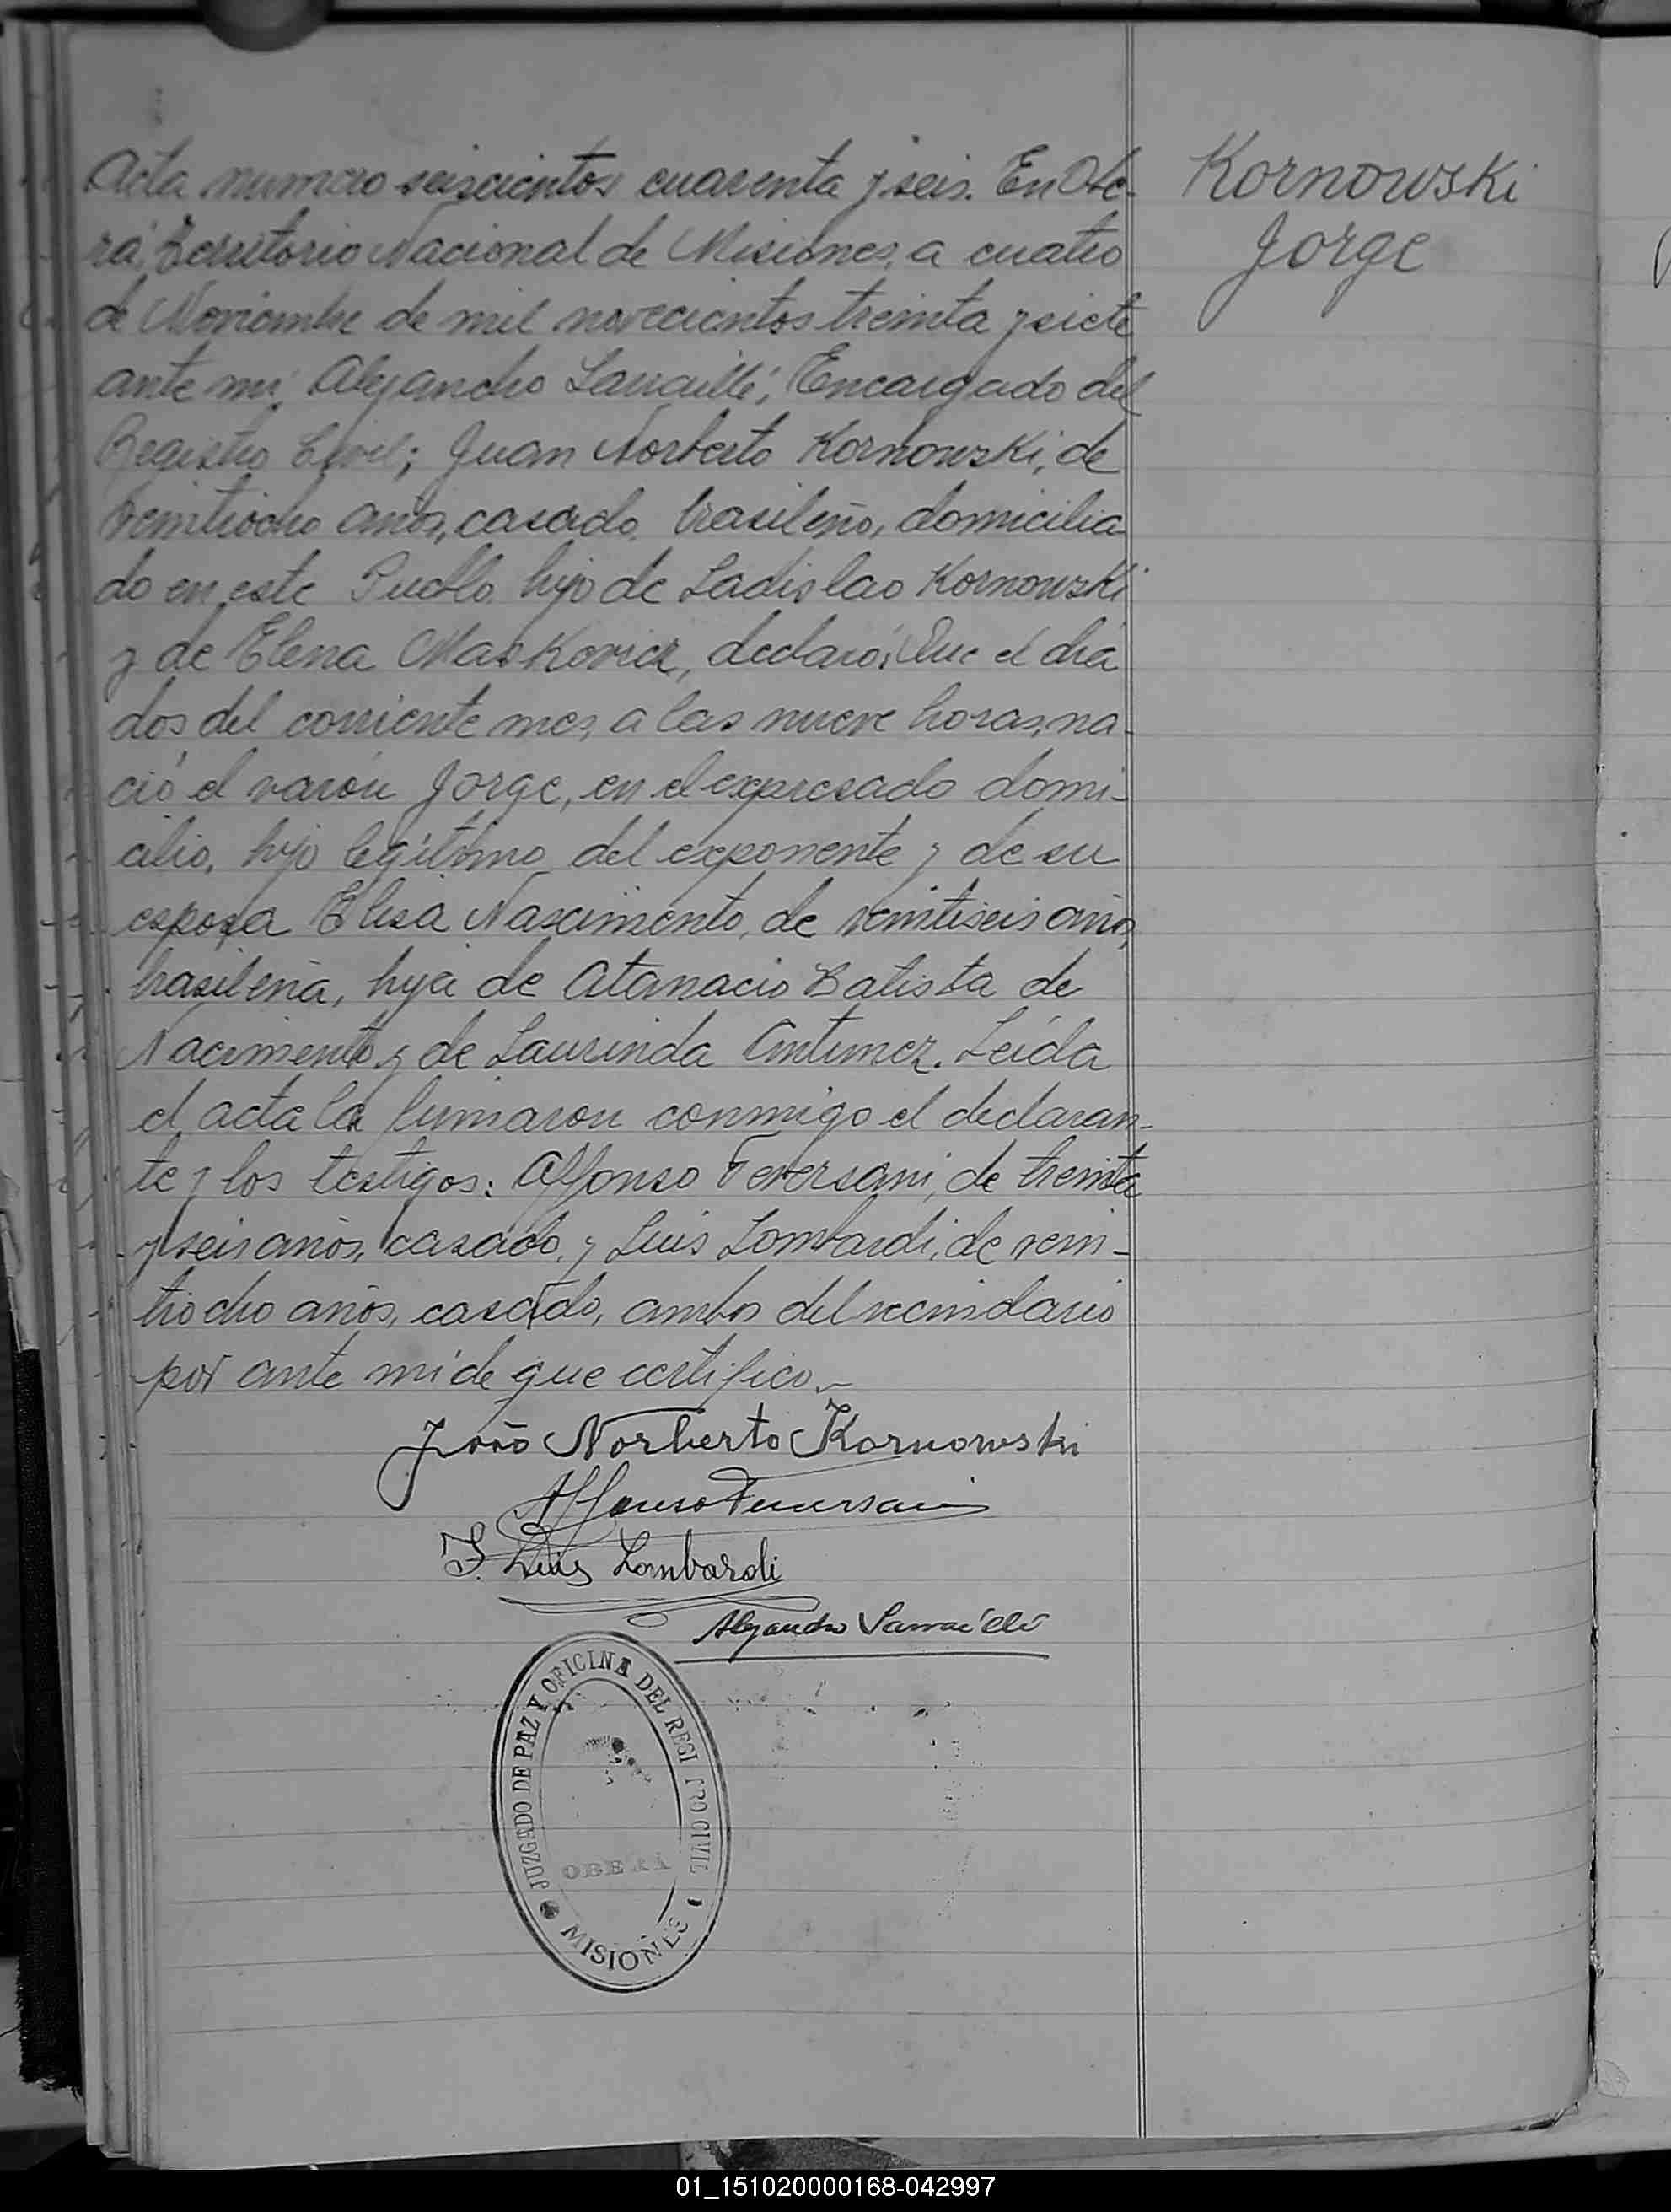 Acta numero seiscientos cuarenta y seis. En Obe-
rá, Territorio Nacional de Misiones, a cuatro
de Noviembre de mil novecientos treinta y siete
ante mi, Alejandro Larraillé, Encargado del
Registro Civil; Juan Norberto Kornowski, de
veintiocho años, casado, brasileño, domicilia-
do en este Pueblo, hijo de Ladislao Kornowski
y de Elena Maskovicz, declaró: Que el día
dos del corriente mes, a las nueve horas, na-
ció el varón Jorge, en el expresado domi-
cilio, hijo legítimo del exponente y de su
esposa Elisa Nascimento, de veintiseis años,
brasileña, hija de Atanacio Batista de
Nacimento y de Laurinda Antunez. Leída
el acta la firmaron conmigo el declaran-
te y los testigos: Affonso Feversani, de treinta
y seis años, casado, y Luis Lombardi, de vein-
tiocho años, casado, ambos del vecindario
por ante mí de que certifico.-
João Norberto Kornowski
Affonso Feversani
J. Luis Lombardi
Alejandro Larraillé
JUZGADO DE PAZ Y OFICINA DEL REGI TRO CIVIL
OBERA
MISIONES
Kornowski
Jorge
01_151020000168-042997